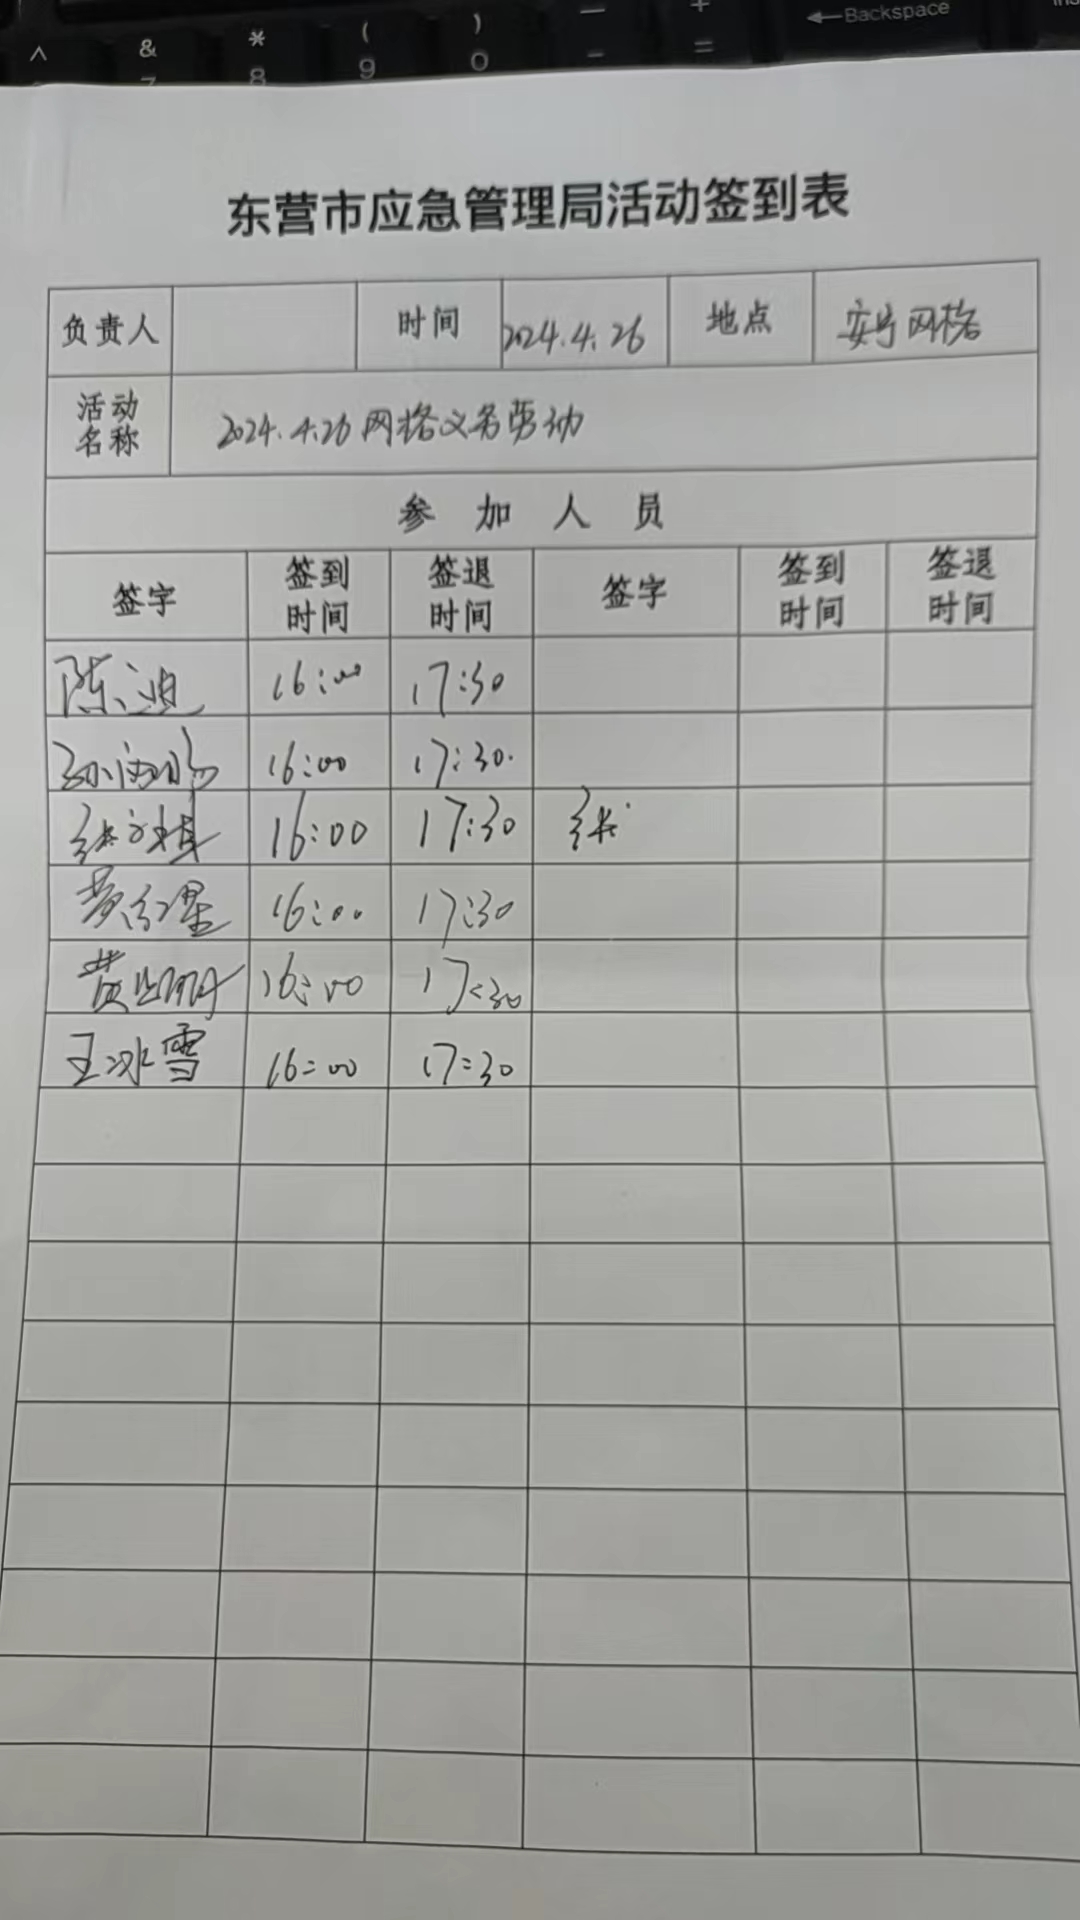 ^ & * ( ) — +
←Backspace
7 8 9 0 - =
东营市应急管理局活动签到表
负责人 时间 2024.4.26 地点 安宁网格
活动名称 2024.4.26网格义务劳动
参加人员
签字 签到时间 签退时间 签字 签到时间 签退时间
陈迪 16:00 17:30
16:00 17:30.
16:00 17:30 张
黄红星 16:00 17:30
黄 16:00 17:30
王冰雪 16:00 17:30